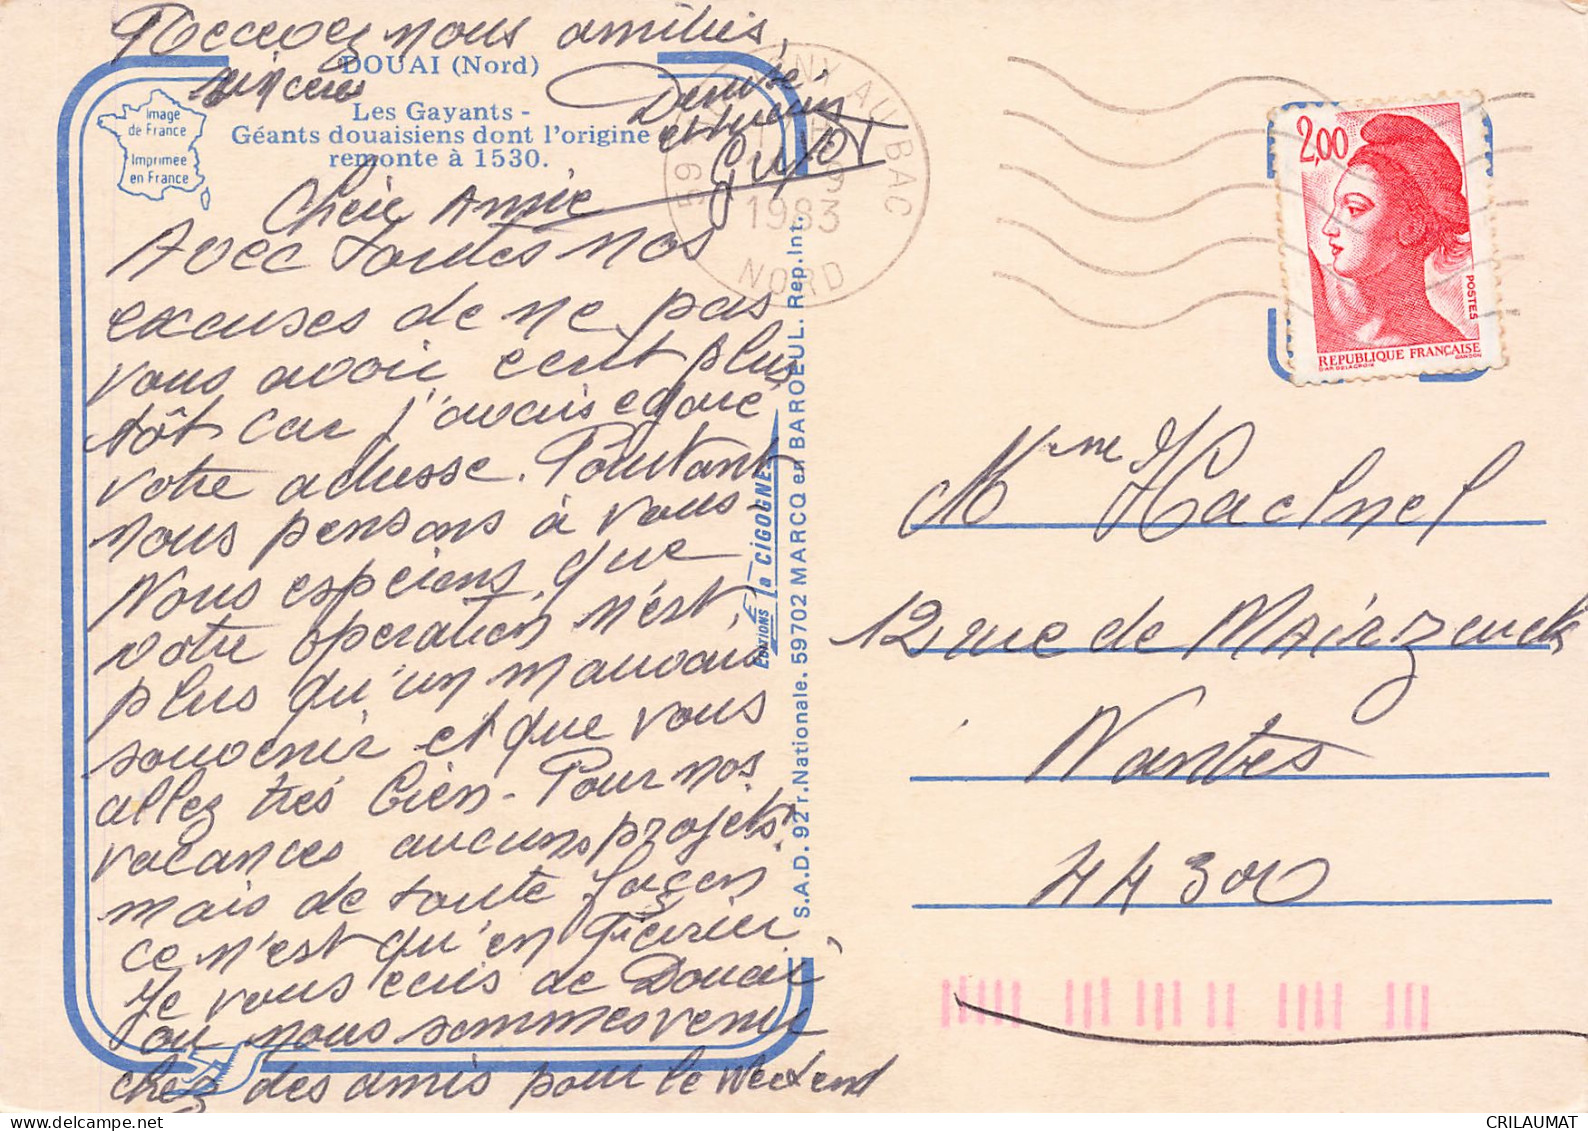 Recevez nous amitiés,
sincères
Denise
et
Guy
DOUAI (Nord)
Les Gayants -
Géants douaisiens dont l'origine
remonte à 1530.
Image
de France
Imprimée
en France
Chère Annie
Avec toutes nos
excuses de ne pas
vous avoir ecrit plus
tôt car j'avais egaré
votre adresse. Pourtant
nous pensons à vous.
Nous espérons, que
votre operation n'est,
plus qu'un mauvais
souvenir et que vous
allez très bien - Pour nos
vacances aucuns projets.
mais de toute façon
ce n'est qu'en Fevrier,
Je vous ecris de Douai,
ou nous sommes venu
chez des amis pour le Weekend
EDITIONS la CIGOGNE
S.A.D. 92 r. Nationale. 59702 MARCQ en BAROEUL. Rep. Int.
59 GNY AU BAC
1983
NORD
2,00
POSTES
REPUBLIQUE FRANÇAISE
D'AP. DELACROIX
GANDON
Mme Hachel
12 rue de
Nantes
44300
CRILAUMAT